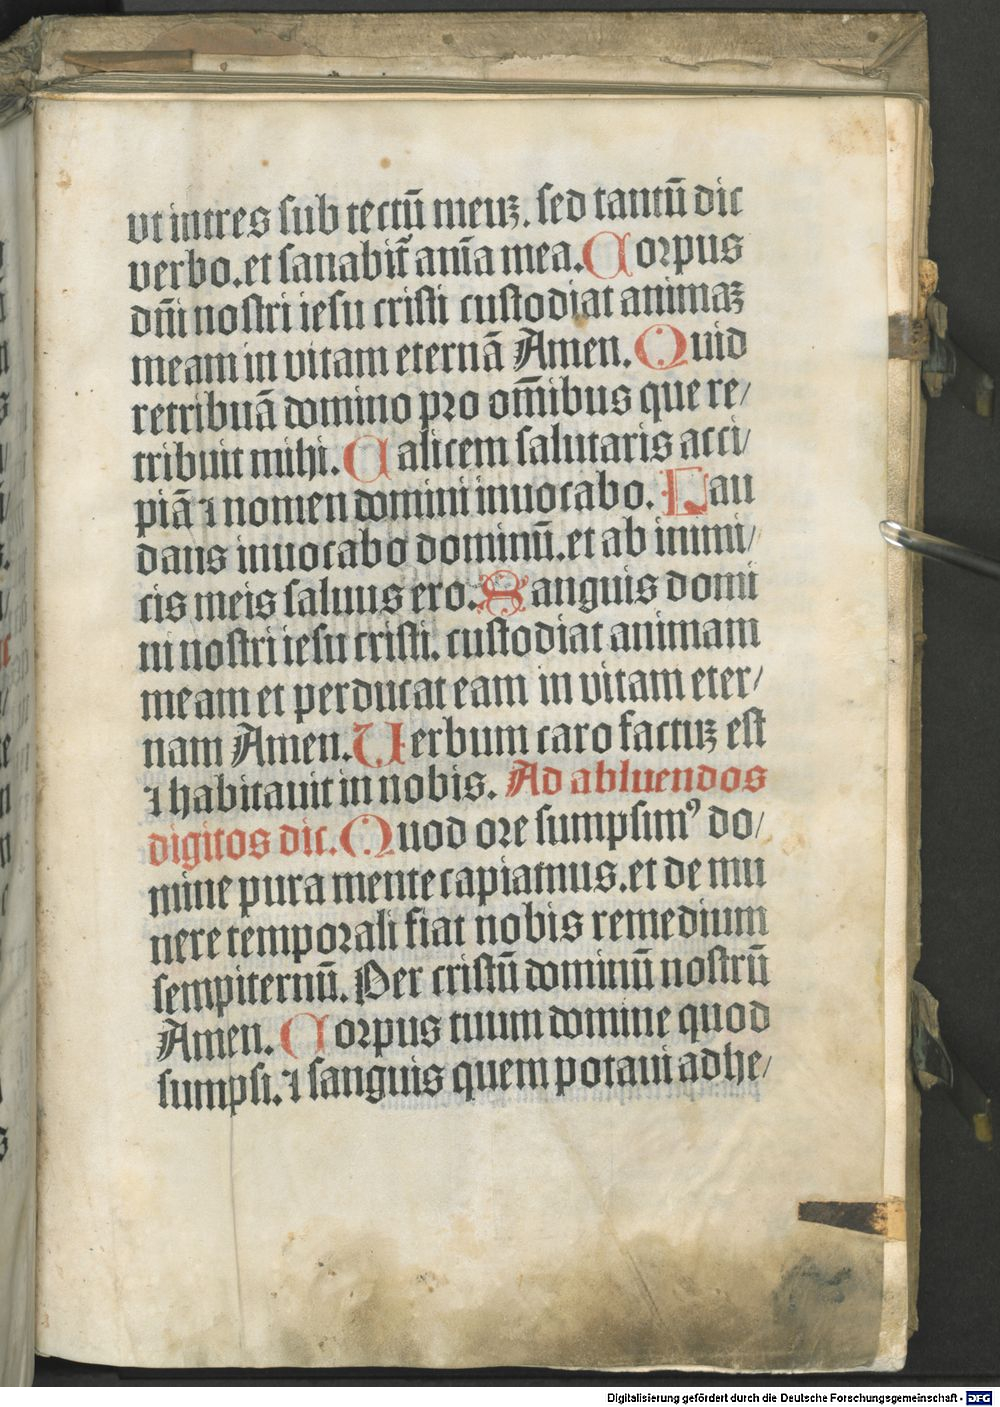 vt intres sub tectū meuꝫ. sed tantū dic
verbo. et sanabit̄ aīa mea. Corpus
dn̄i nostri iesu cristi custodiat animaꝫ
meam in vitam eternā Amen. Quid
retribuā domino pro om̄ibus que re/
tribuit mihi. Calicem salutaris acci/
piā ⁊ nomen domini inuocabo. Lau
dans inuocabo dominū. et ab inimi/
cis meis saluus ero. Sanguis domi
ni nostri iesu cristi. custodiat animam
meam et perducat eam in vitam eter/
nam Amen. Uerbum caro factuꝫ est
⁊ habitauit in nobis. Ad abluendos
digitos dic. Quod ore sumpsimꝰ do/
mine pura mente capiamus. et de mu
nere temporali fiat nobis remedium
sempiternū. Per cristū dominū nostrū
Amen. Corpus tuum domine quod
sumpsi. ⁊ sanguis quem potaui adhe/
Digitalisierung gefördert durch die Deutsche Forschungsgemeinschaft - DFG